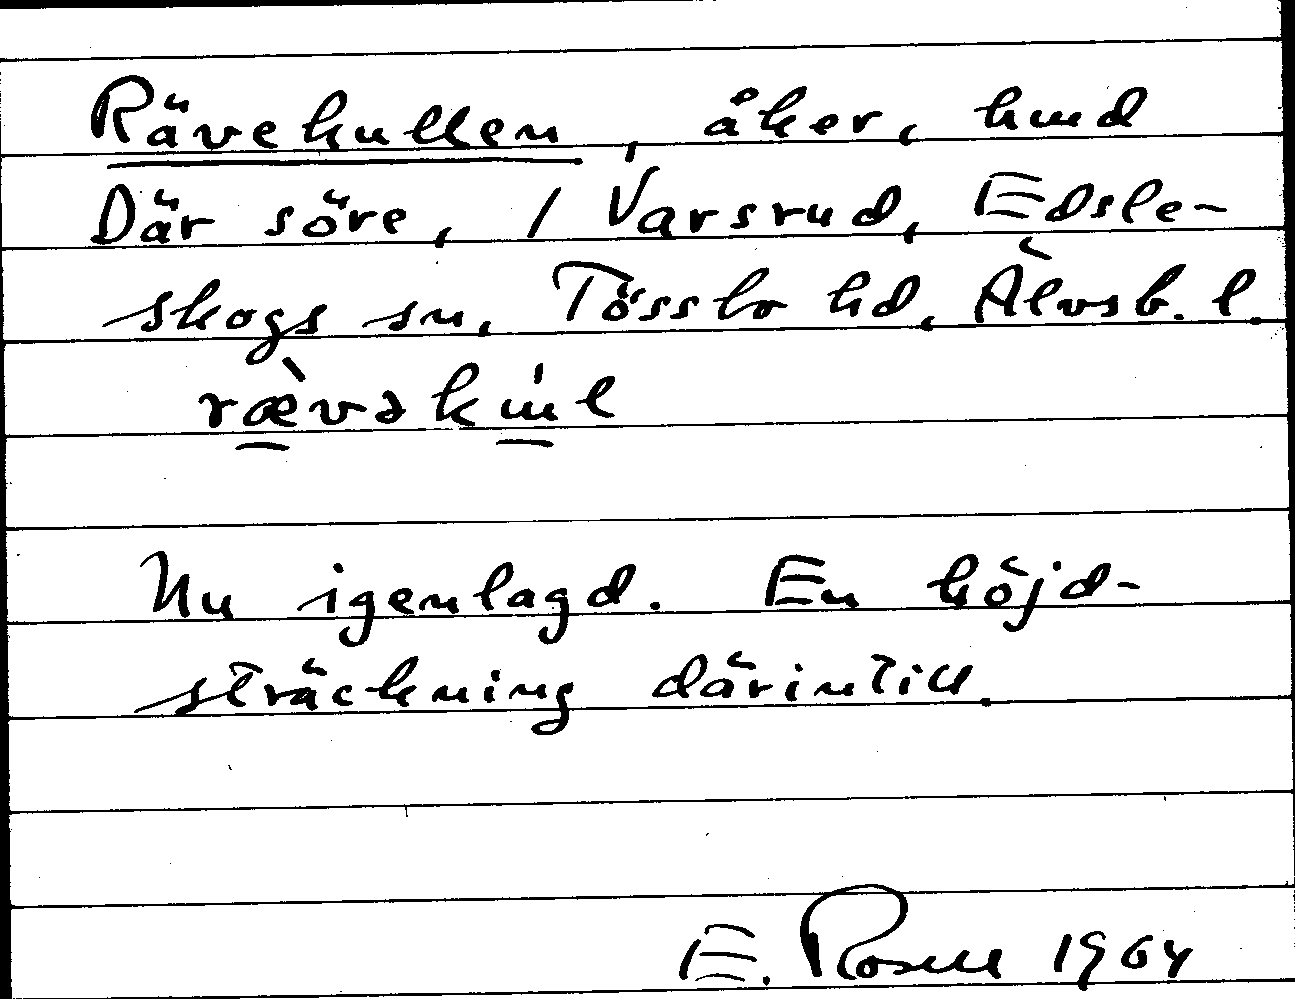 Rävekullen, åker, hmd
Där söre, / Varsrud, Edsle-
skogs sn, Tössbo hd, Älvsb. l.
rævəkul
Nu igenlagd. En höjd-
sträckning därintill.
E. Rosell 1964